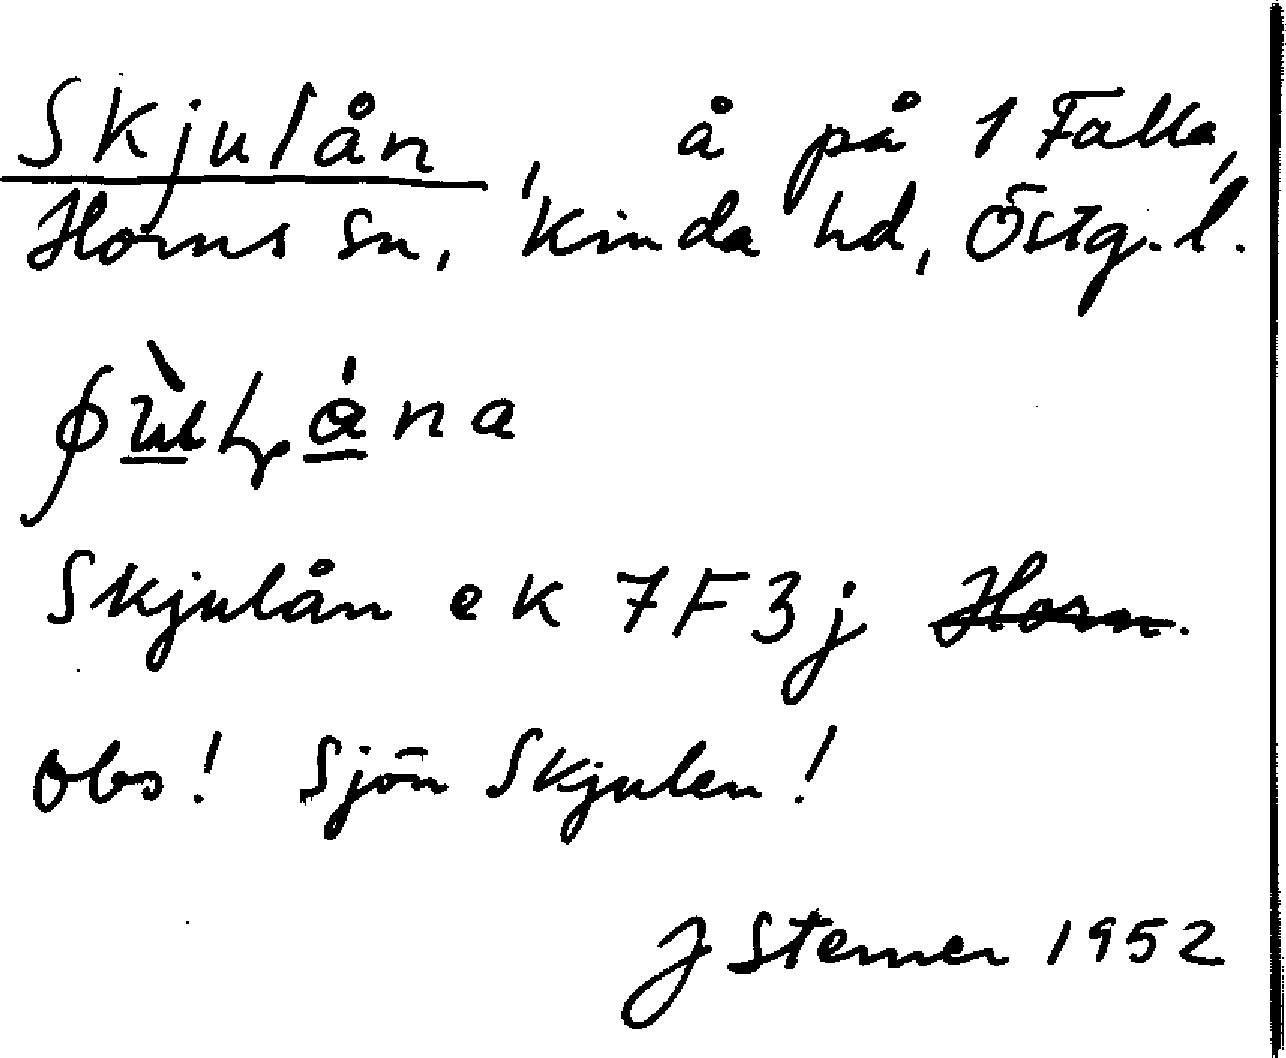 Skjulån, å på 1 Falla,
Horns sn, Kinda hd, Östg. l.
Skjulån ek 7F3j Horn.
Obs! Sjön Skjulen!
J Sterner 1952